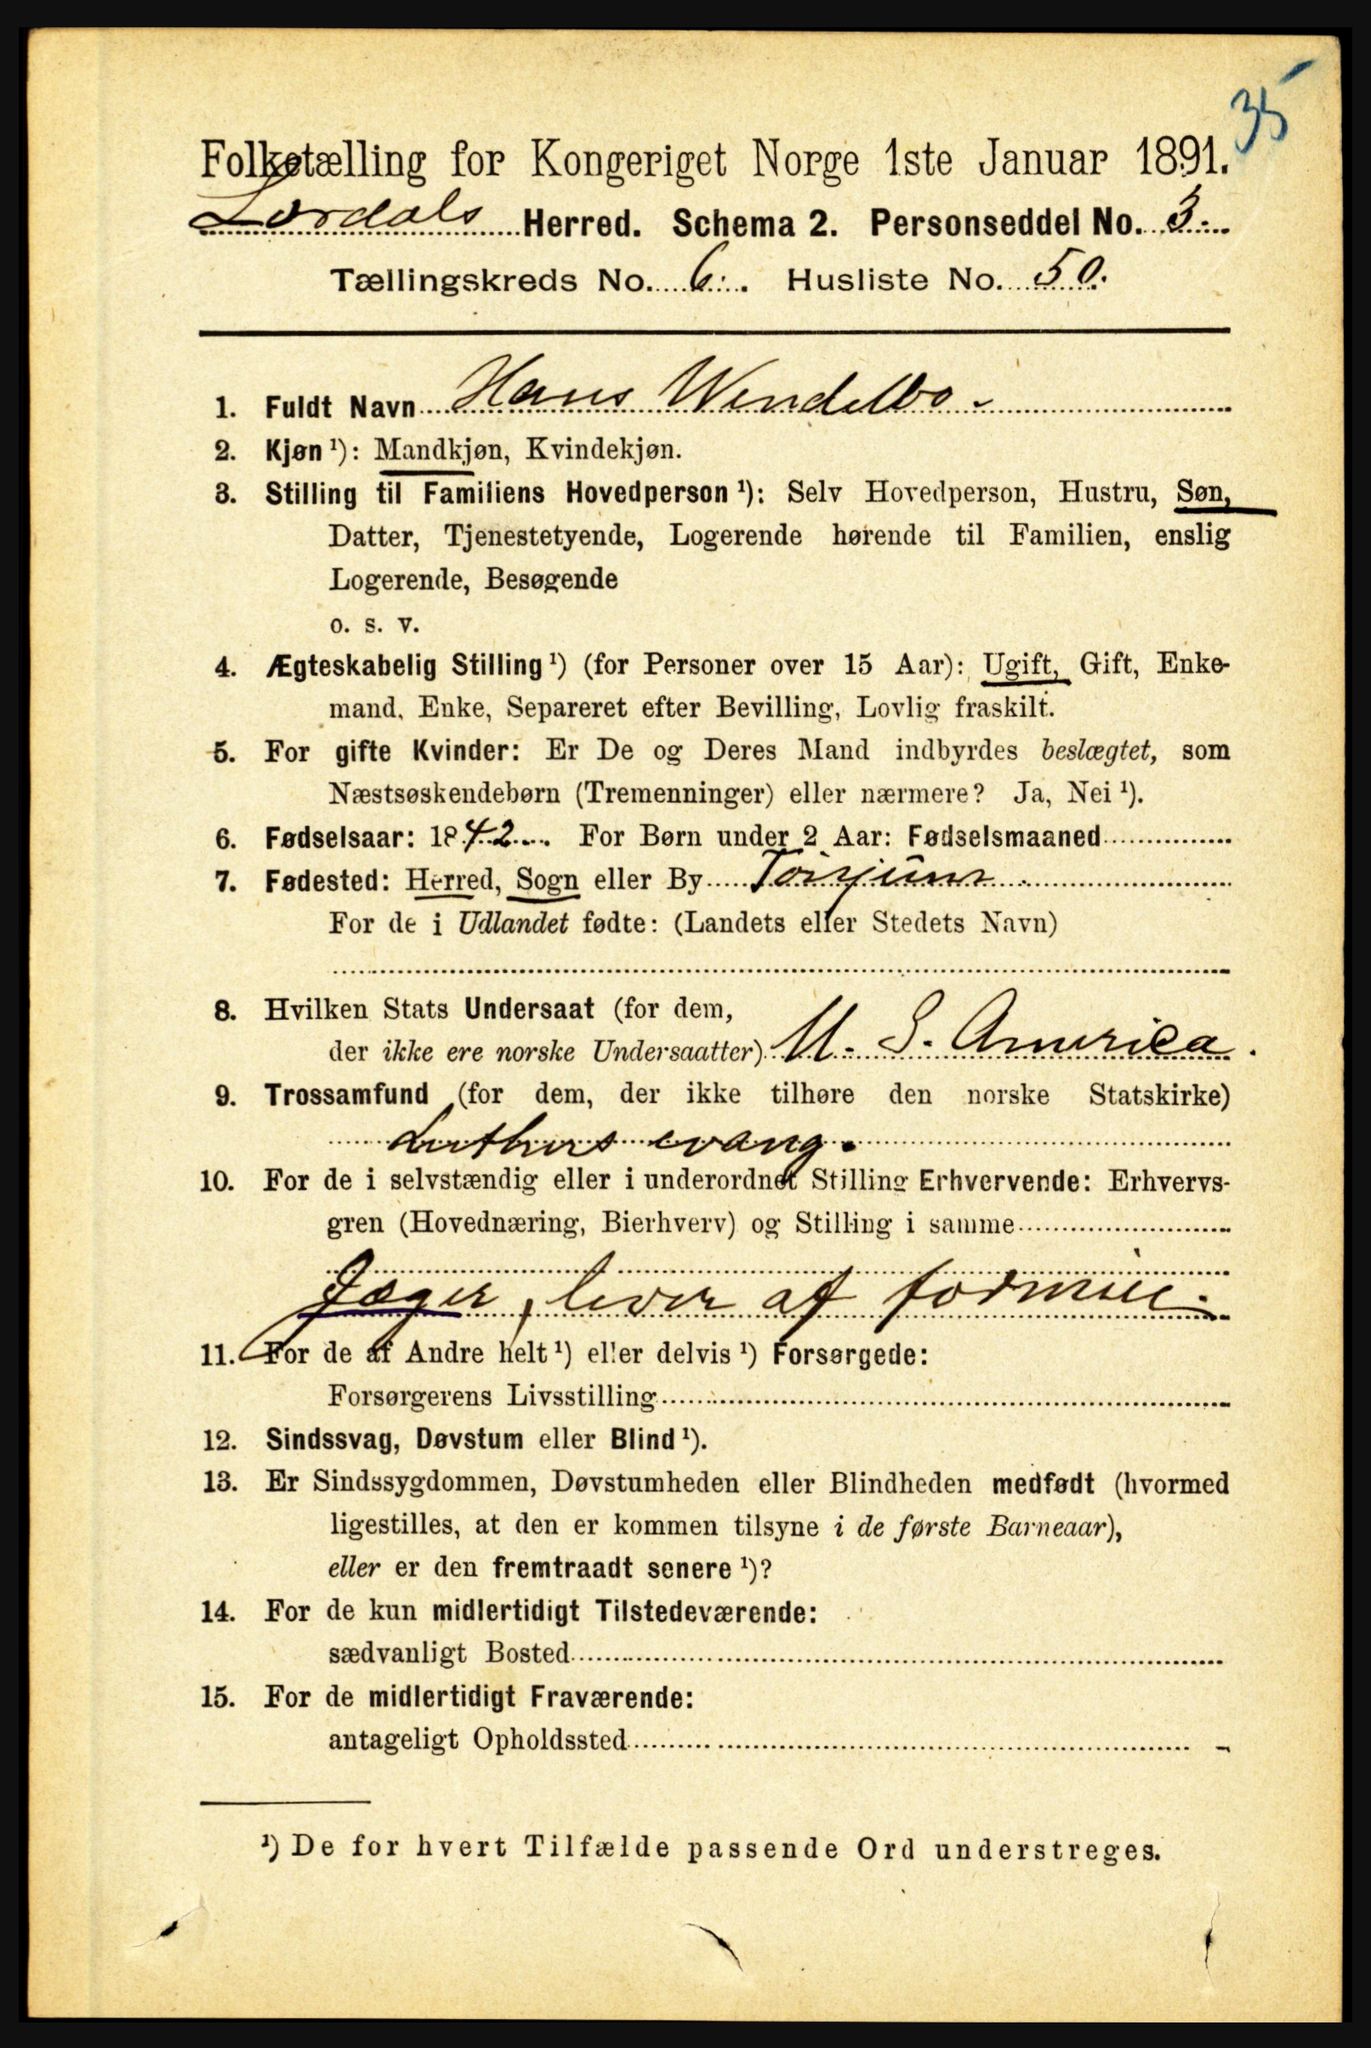 35
Folketælling for Kongeriget Norge 1ste Januar 1891.
Lærdals Herred. Schema 2. Personseddel No. 3.
Tællingskreds No. 6. Husliste No. 50.
1. Fuldt Navn Hans Wendelbo.
2. Kjøn ¹): Mandkjøn, Kvindekjøn.
3. Stilling til Familiens Hovedperson ¹): Selv Hovedperson, Hustru, Søn,
Datter, Tjenestetyende, Logerende hørende til Familien, enslig
Logerende, Besøgende
o. s. v.
4. Ægteskabelig Stilling ¹) (for Personer over 15 Aar): Ugift, Gift, Enke-
mand, Enke, Separeret efter Bevilling, Lovlig fraskilt.
5. For gifte Kvinder: Er De og Deres Mand indbyrdes beslægtet, som
Næstsøskendebørn (Tremenninger) eller nærmere? Ja, Nei ¹).
6. Fødselsaar: 1842. For Børn under 2 Aar: Fødselsmaaned
7. Fødested: Herred, Sogn eller By Tonjum.
For de i Udlandet fødte: (Landets eller Stedets Navn)
8. Hvilken Stats Undersaat (for dem,
der ikke ere norske Undersaatter) U. S. America.
9. Trossamfund (for dem, der ikke tilhøre den norske Statskirke)
Luthers evang.
10. For de i selvstændig eller i underordnet Stilling Erhvervende: Erhvervs-
gren (Hovednæring, Bierhverv) og Stilling i samme
Jæger, lever af formue.
11. For de af Andre helt ¹) eller delvis ¹) Forsørgede:
Forsørgerens Livsstilling
12. Sindssvag, Døvstum eller Blind ¹).
13. Er Sindssygdommen, Døvstumheden eller Blindheden medfødt (hvormed
ligestilles, at den er kommen tilsyne i de første Barneaar),
eller er den fremtraadt senere ¹)?
14. For de kun midlertidigt Tilstedeværende:
sædvanligt Bosted
15. For de midlertidigt Fraværende:
antageligt Opholdssted
¹) De for hvert Tilfælde passende Ord understreges.